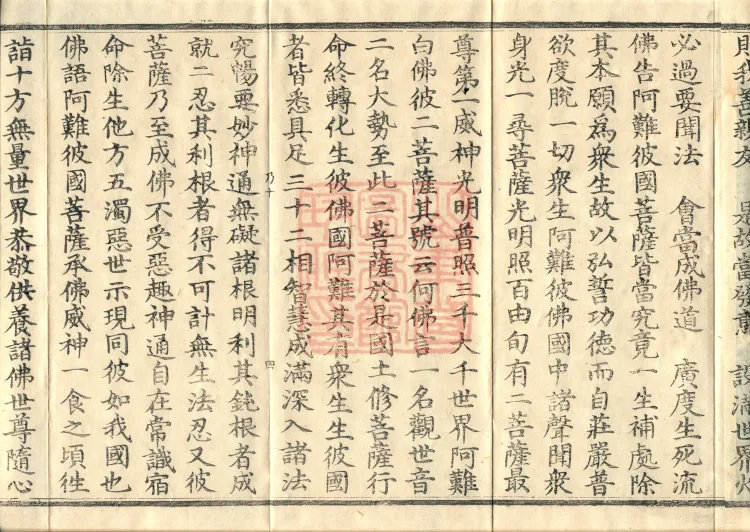 則我善親友 是故當發意 設滿世界火
必過要聞法 會當成佛道 廣度生死流
佛告阿難彼國菩薩皆當究竟一生補處除
其本願為衆生故以弘誓功德而自莊嚴普
欲度脫一切衆生阿難彼佛國中諸聲聞衆
身光一尋菩薩光明照百由旬有二菩薩最
尊第一威神光明普照三千大千世界阿難
白佛彼二菩薩其號云何佛言一名觀世音
二名大勢至此二菩薩於是國土修菩薩行
命終轉化生彼佛國阿難其有衆生生彼國
者皆悉具足三十二相智慧成滿深入諸法
乃十 四
究暢要妙神通無礙諸根明利其鈍根者成
就二忍其利根者得不可計無生法忍又彼
菩薩乃至成佛不受惡趣神通自在常識宿
命除生他方五濁惡世示現同彼如我國也
佛語阿難彼國菩薩承佛威神一食之頃往
詣十方無量世界恭敬供養諸佛世尊隨心